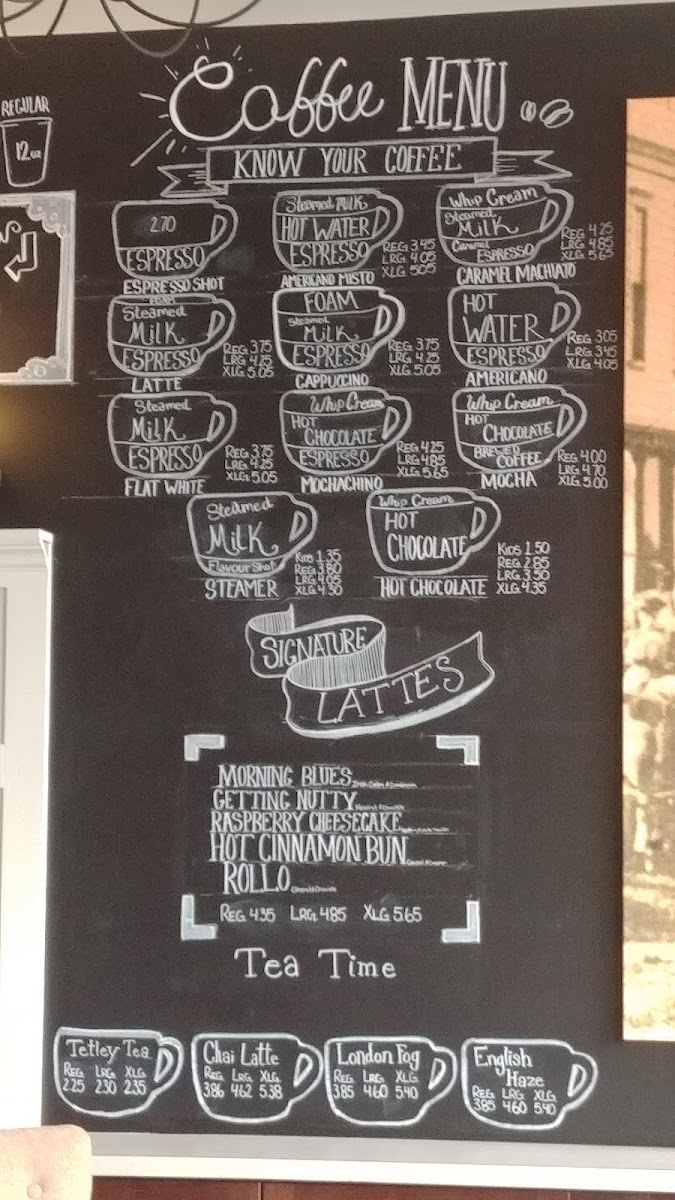 Coffee MENU
REGULAR
12oz
KNOW YOUR COFFEE
2.70
ESPRESSO
ESPRESSO SHOT
Steamed Milk
HOT WATER
ESPRESSO
REG 3.45
LRG 4.05
XLG 5.05
AMERICANO MISTO
Whip Cream
Steamed
Milk
Caramel
ESPRESSO
REG 4.25
LRG 4.85
XLG 5.65
CARAMEL MACHIATO
FOAM
Steamed
Milk
ESPRESSO
REG 3.75
LRG 4.25
XLG 5.05
LATTE
FOAM
Steamed
Milk
ESPRESSO
REG 3.75
LRG 4.25
XLG 5.05
CAPPUCCINO
HOT
WATER
ESPRESSO
REG 3.05
LRG 3.45
XLG 4.05
AMERICANO
Steamed
Milk
ESPRESSO
REG 3.75
LRG 4.25
XLG 5.05
FLAT WHITE
Whip Cream
HOT
CHOCOLATE
ESPRESSO
REG 4.25
LRG 4.85
XLG 5.65
MOCHACHINO
Whip Cream
HOT
CHOCOLATE
BREWED
COFFEE
REG 4.00
LRG 4.70
XLG 5.00
MOCHA
Steamed
Milk
Flavour Shot
KIDS 1.35
REG 3.80
LRG 4.05
XLG 4.50
STEAMER
Whip Cream
HOT
CHOCOLATE
KIDS 1.50
REG 2.85
LRG 3.50
XLG 4.35
HOT CHOCOLATE
SIGNATURE
LATTES
MORNING BLUES
GETTING NUTTY
RASPBERRY CHEESECAKE
HOT CINNAMON BUN
ROLLO
REG 4.35 LRG 4.85 XLG 5.65
Tea Time
Tetley Tea
REG LRG XLG
2.25 2.30 2.35
Chai Latte
REG LRG XLG
3.86 4.62 5.38
London Fog
REG LRG XLG
3.85 4.60 5.40
English
Haze
REG LRG XLG
3.85 4.60 5.40